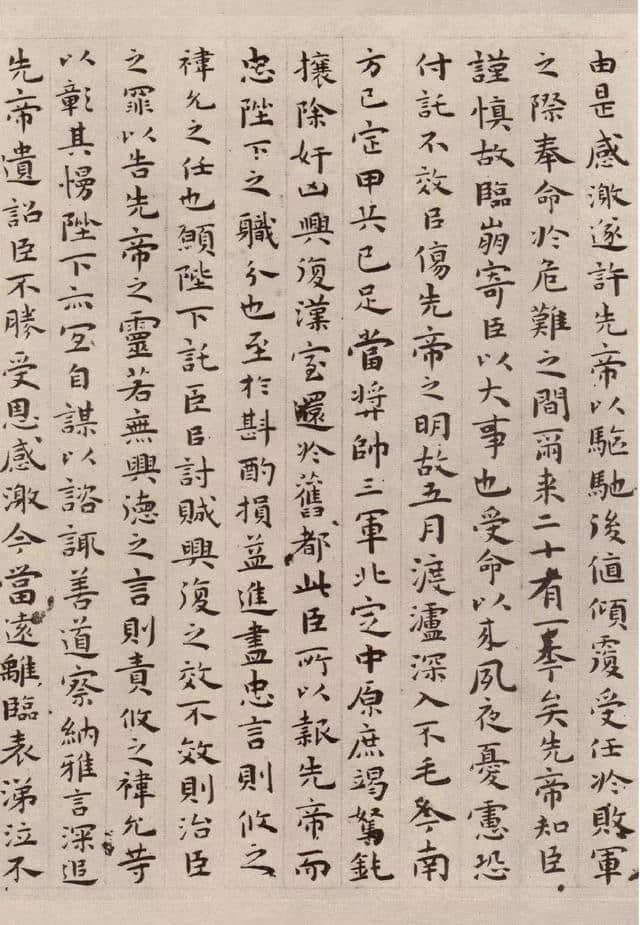 由是感激遂許先帝以驅馳後值傾覆受任於敗軍
之際奉命於危難之間爾来二十有一年矣先帝知臣
謹慎故臨崩寄臣以大事也受命以来夙夜憂慮恐
付託不效臣傷先帝之明故五月渡瀘深入不毛今南
方已定甲兵已足當奨帥三軍北定中原庶竭駑鈍
攘除奸凶興復漢室還於舊都此臣所以報先帝而
忠陛下之職分也至於斟酌損益進盡忠言則攸之
禕允之任也願陛下託臣臣討賊興復之效不效則治臣
之罪以告先帝之靈若無興德之言則責攸之禕允等
以彰其慢陛下亦宜自謀以諮諏善道察納雅言深追
先帝遺詔臣不勝受恩感激今當遠離臨表涕泣不